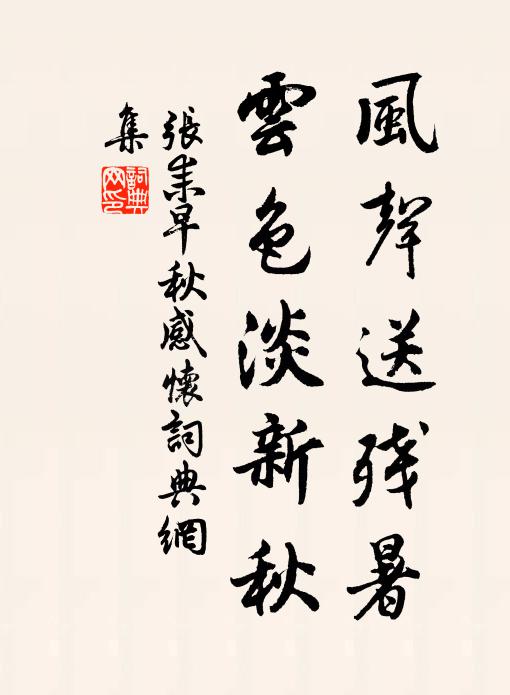 風聲送残暑
雲色淡新秋
張耒早秋感懷詞典網
集
詞典
网印